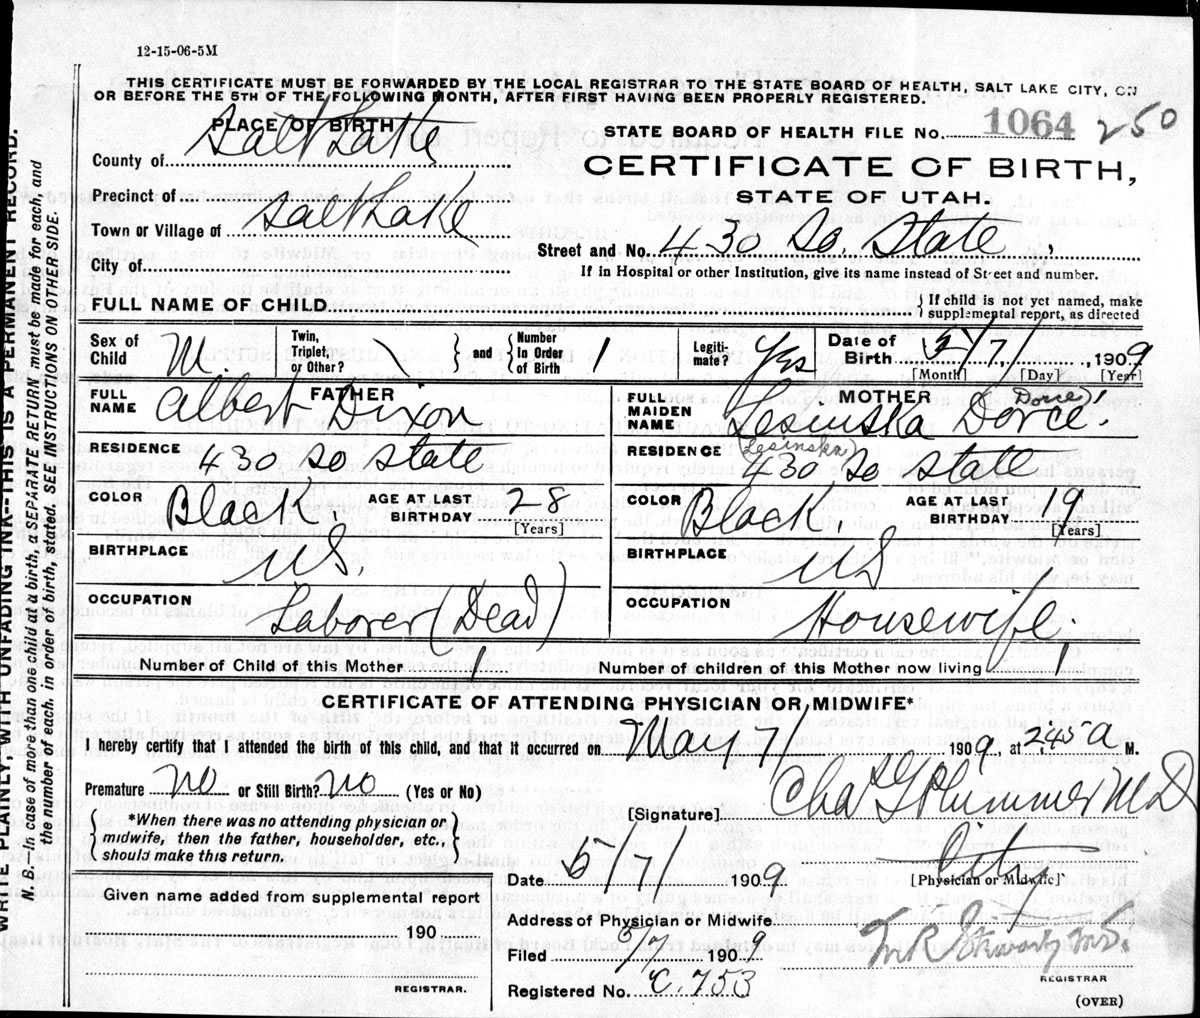 12-15-06-5M
THIS CERTIFICATE MUST BE FORWARDED BY THE LOCAL REGISTRAR TO THE STATE BOARD OF HEALTH, SALT LAKE CITY, ON
OR BEFORE THE 5TH OF THE FOLLOWING MONTH, AFTER FIRST HAVING BEEN PROPERLY REGISTERED.
PLACE OF BIRTH
County of Salt Lake
Precinct of
Town or Village of Salt Lake
City of
STATE BOARD OF HEALTH FILE No. 1064 250
CERTIFICATE OF BIRTH,
STATE OF UTAH.
Street and No. 430 So. State
If in Hospital or other Institution, give its name instead of Street and number.
FULL NAME OF CHILD
If child is not yet named, make
supplemental report, as directed
Sex of Child M.
Twin, Triplet, or Other?
and Number in Order of Birth 1
Legiti-mate? Yes
Date of Birth 5/7/ 1909
[Month] [Day] [Year]
FATHER
FULL NAME Albert Dixon
RESIDENCE 430 So State
COLOR Black AGE AT LAST BIRTHDAY 28
[Years]
BIRTHPLACE U.S.
OCCUPATION Laborer (Dead)
MOTHER
FULL MAIDEN NAME Lesinska Dorce (Dorce)
(Lesinska)
RESIDENCE 430 So State
COLOR Black AGE AT LAST BIRTHDAY 19
[Years]
BIRTHPLACE US
OCCUPATION Housewife.
Number of Child of this Mother 1
Number of children of this Mother now living 1
CERTIFICATE OF ATTENDING PHYSICIAN OR MIDWIFE*
I hereby certify that I attended the birth of this child, and that it occurred on May 7 1909, at 2:45 a M.
Premature No or Still Birth? No (Yes or No)
*When there was no attending physician or
midwife, then the father, householder, etc.,
should make this return.
[Signature] Chas G Plummer MD
City
[Physician or Midwife]
Given name added from supplemental report
190
REGISTRAR.
Date 5/7 1909
Address of Physician or Midwife
Filed 5/7 1909
Registered No. C. 753
REGISTRAR
(OVER)
WRITE PLAINLY, WITH UNFADING INK--THIS IS A PERMANENT RECORD.
N. B. In case of more than one child at a birth, a SEPARATE RETURN must be made for each, and
the number of each, in order of birth, stated. SEE INSTRUCTIONS ON OTHER SIDE.